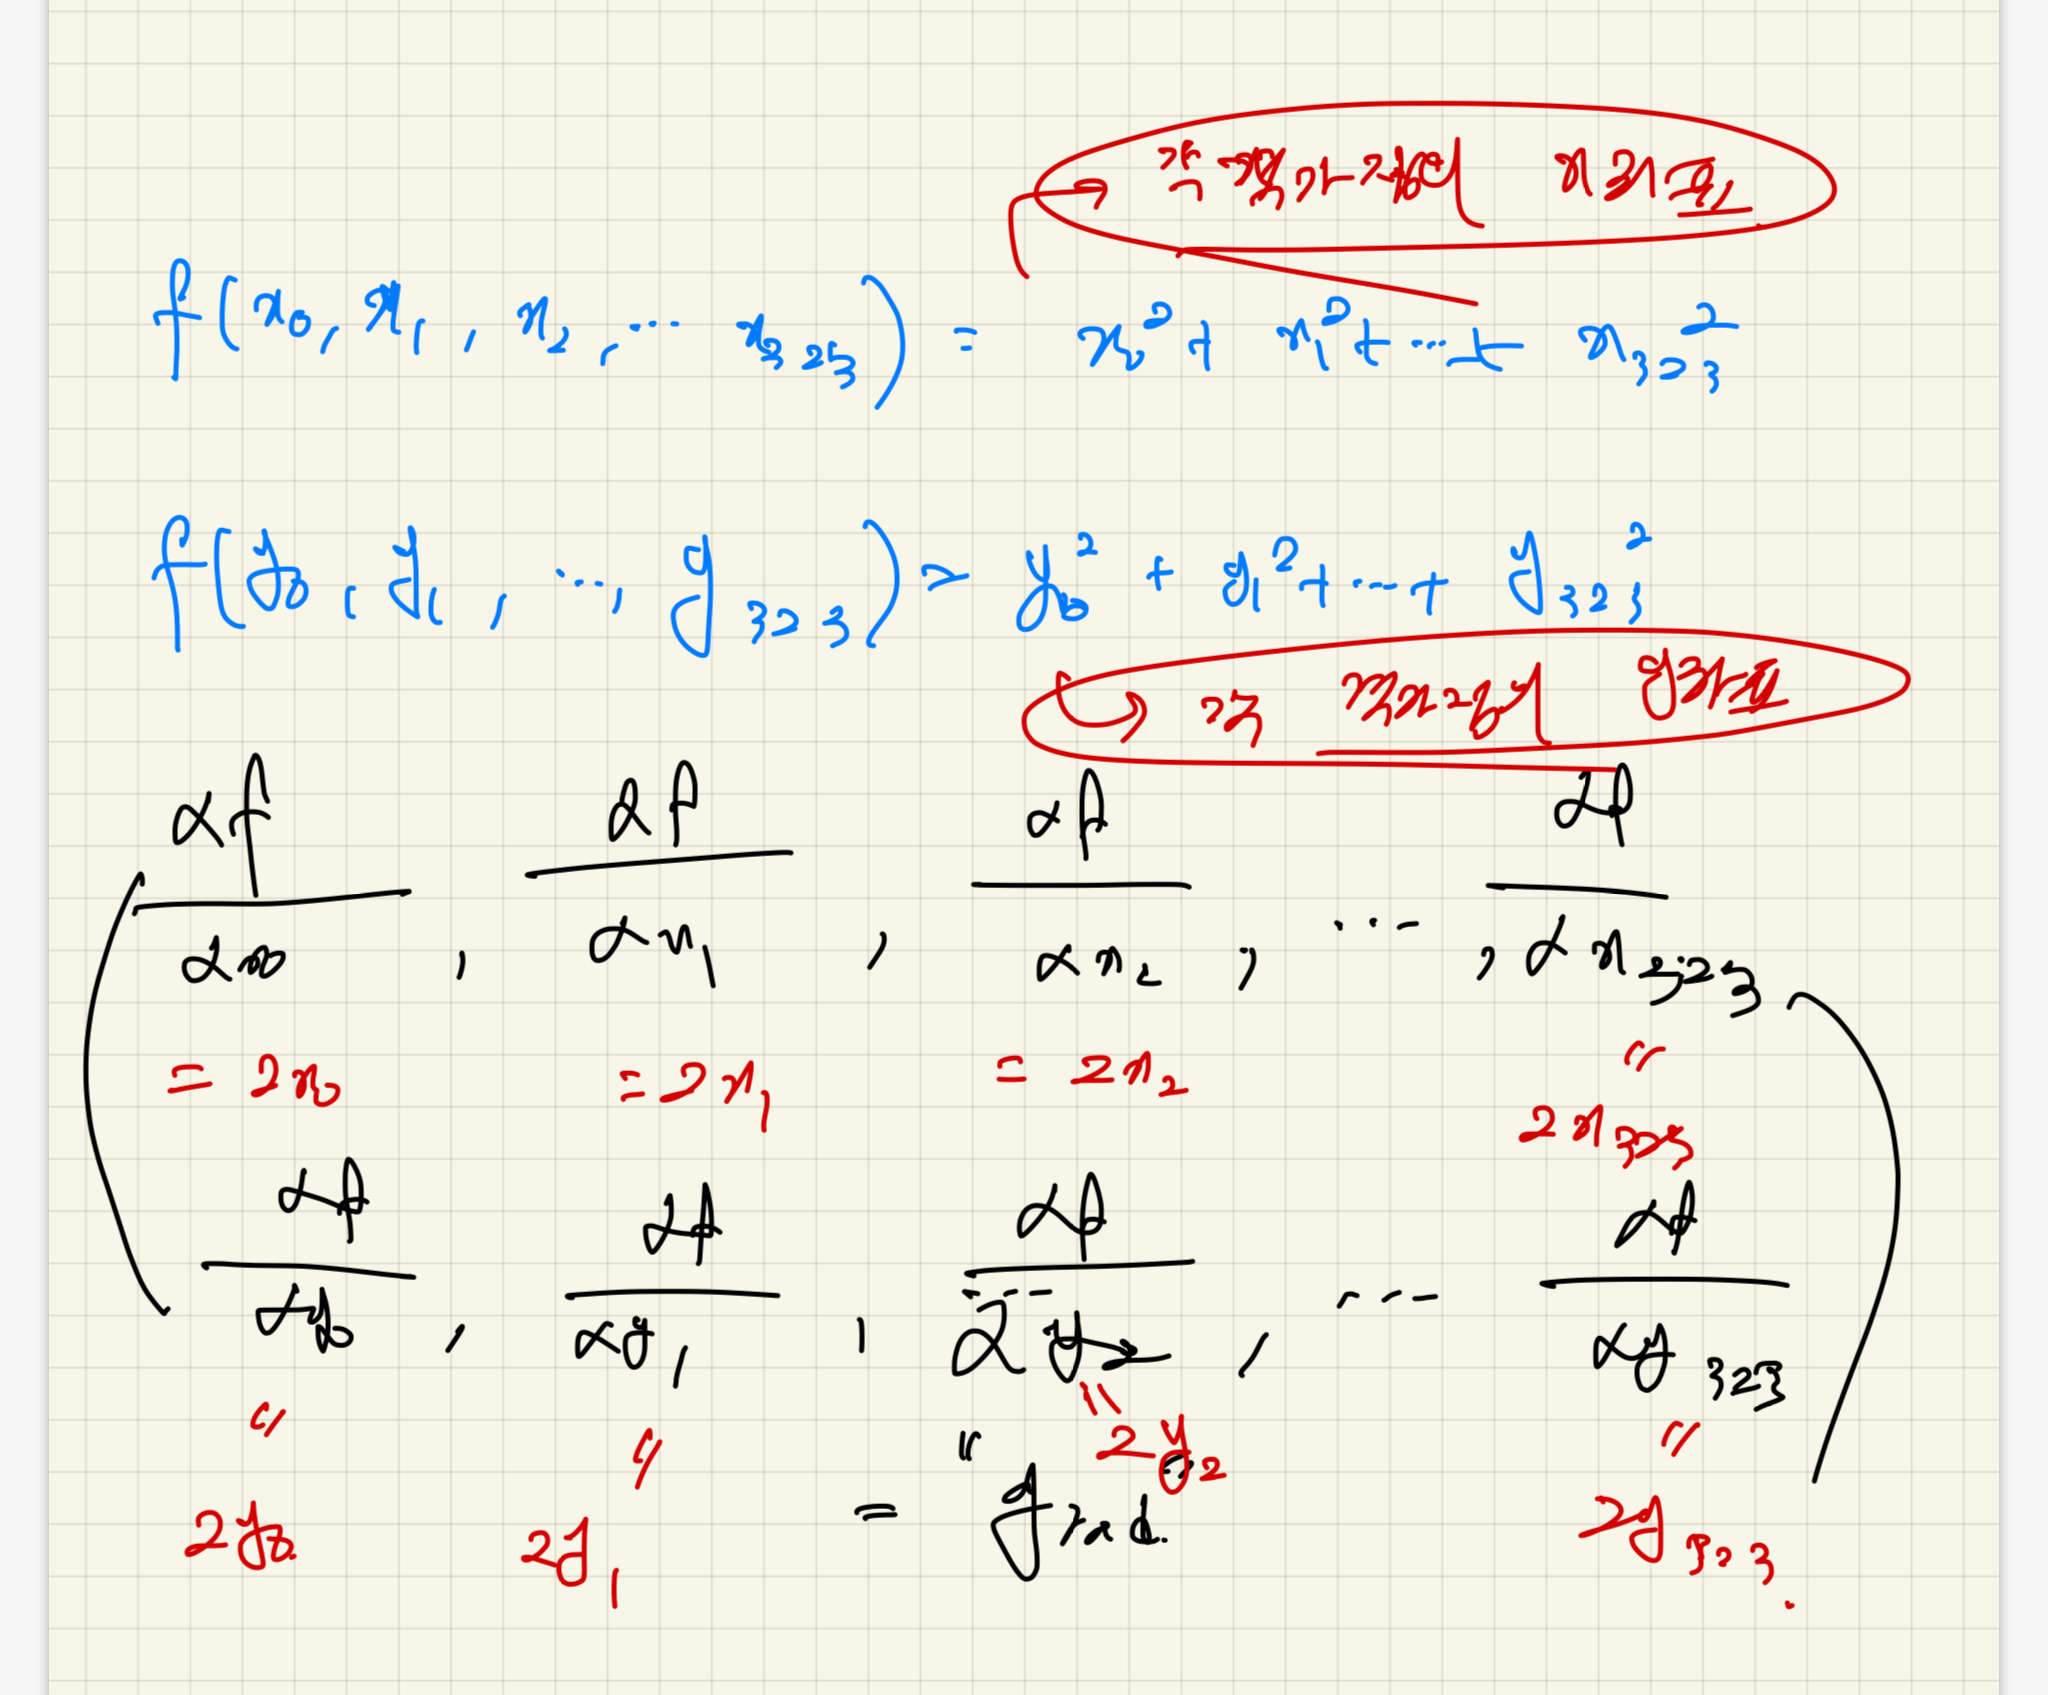 f(x₀, x₁, x₂, ... x₃₂₃) = x₀² + x₁² + ... + x₃₂₃²
f(y₀, y₁, ..., y₃₂₃) = y₀² + y₁² + ... + y₃₂₃²
αf/αx₀, αf/αx₁, αf/αx₂, ..., αf/αx₃₂₃
= 2x₀ = 2x₁ = 2x₂ = 2x₃₂₃
αf/αy₀, αf/αy₁, αf/αy₂, ... αf/αy₃₂₃
= 2y₀ = 2y₁ = 2y₂ = 2y₃₂₃.
= grad.